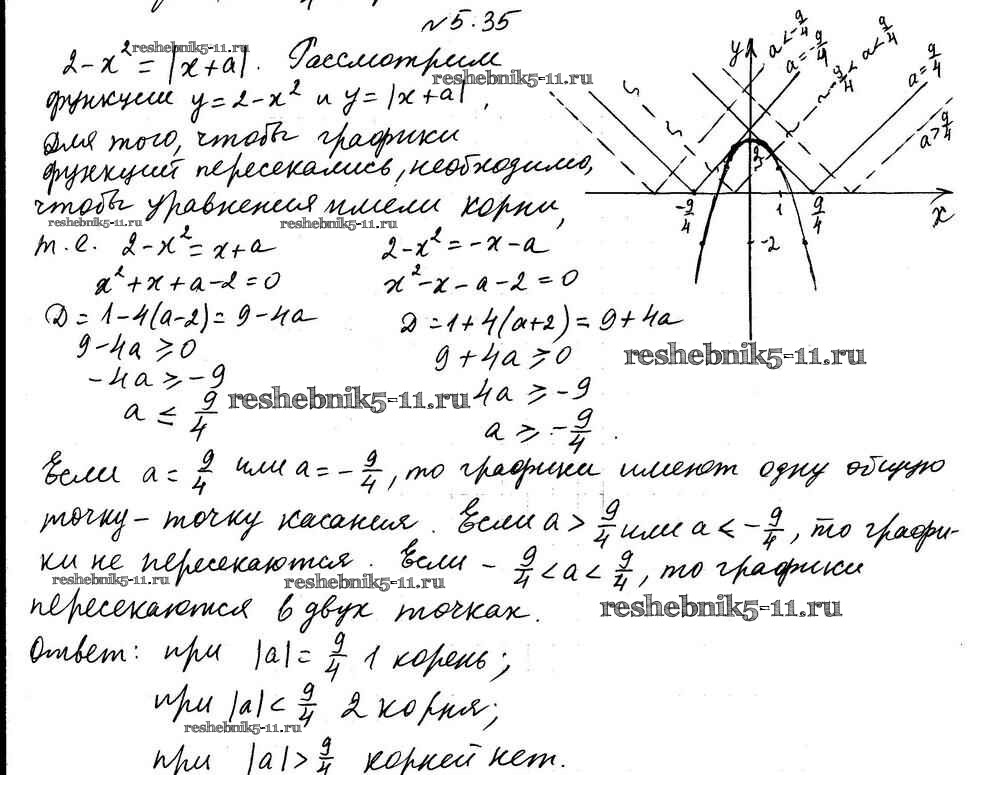 №5.35
2-x² = |x+a|. Рассмотрим
функции y=2-x² и y=|x+a|,
Для того, чтобы графики
функций пересекались, необходимо,
чтобы уравнения имели корни,
т.е. 2-x²=x+a    2-x²=-x-a
x²+x+a-2=0    x²-x-a-2=0
D=1-4(a-2)=9-4a    D=1+4(a+2)=9+4a
9-4a⩾0    9+4a⩾0
-4a⩾-9    4a⩾-9
a≤9/4    a⩾-9/4.
Если a=9/4 или a=-9/4, то графики имеют одну общую
точку - точку касания. Если a>9/4 или a<-9/4, то графи-
ки не пересекаются. Если -9/4<a<9/4, то графики
пересекаются в двух точках.
Ответ: при |a|=9/4 1 корень;
при |a|<9/4 2 корня;
при |a|>9/4 корней нет.
y
a<-9/4
a=-9/4
-9/4<a<9/4
a=9/4
a>9/4
2
-9/4
1
9/4
x
-2
reshebnik5-11.ru
reshebnik5-11.ru
reshebnik5-11.ru
reshebnik5-11.ru
reshebnik5-11.ru
reshebnik5-11.ru
reshebnik5-11.ru
reshebnik5-11.ru
reshebnik5-11.ru
reshebnik5-11.ru